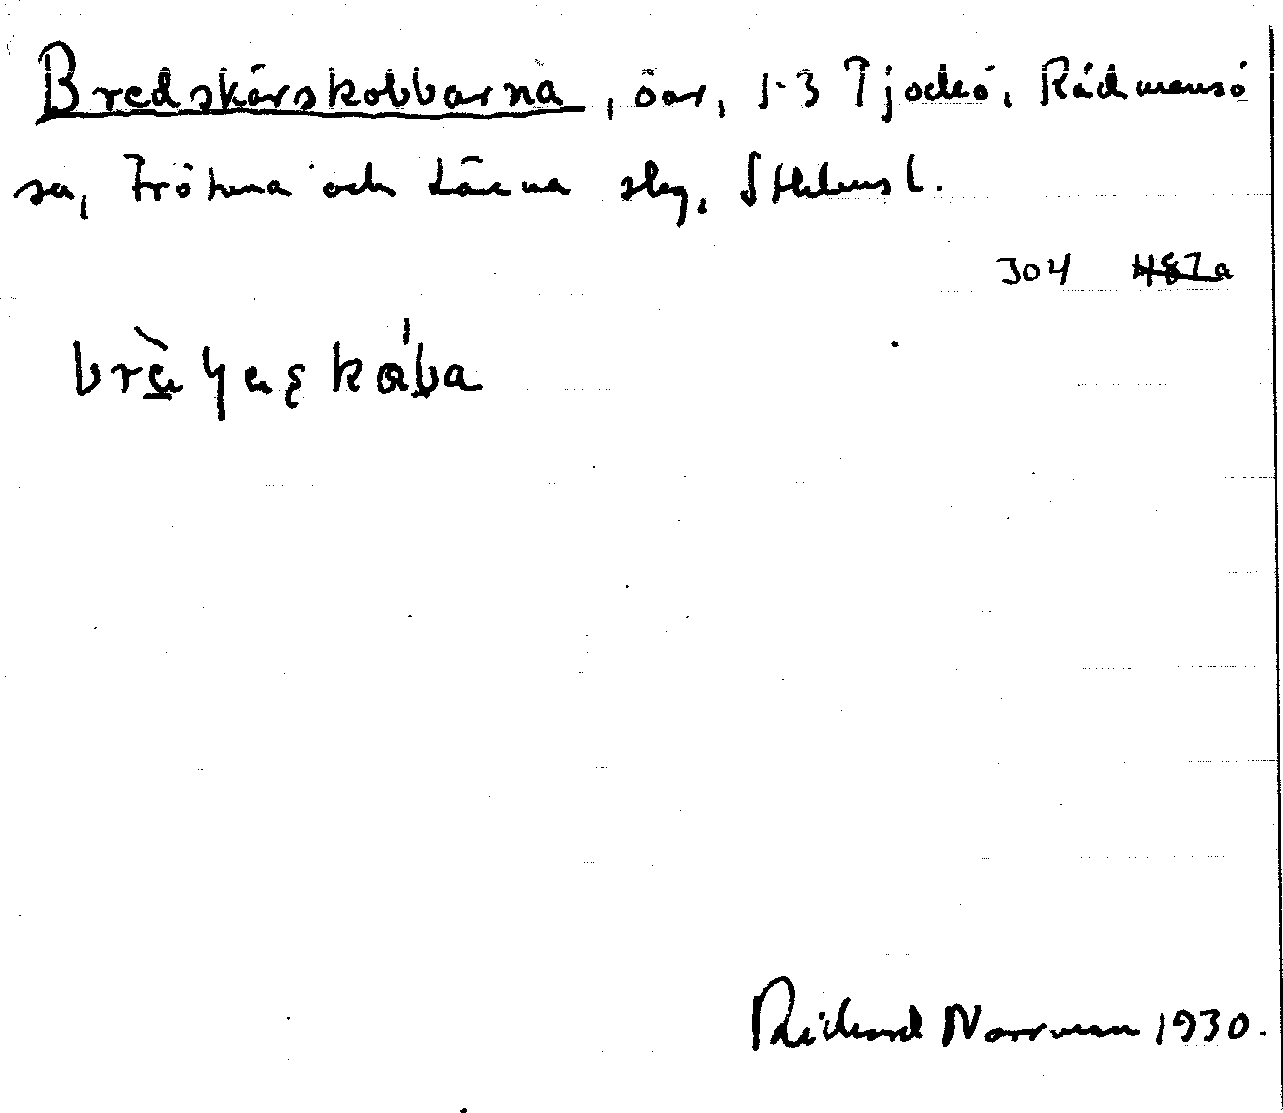 Bredskärskobbarna, öar, 1-3 Tjockö, Rådmansö
sn, Frötuna och Länna slg, Sthlms l.
JO4 487a
Richard Norrman 1930.